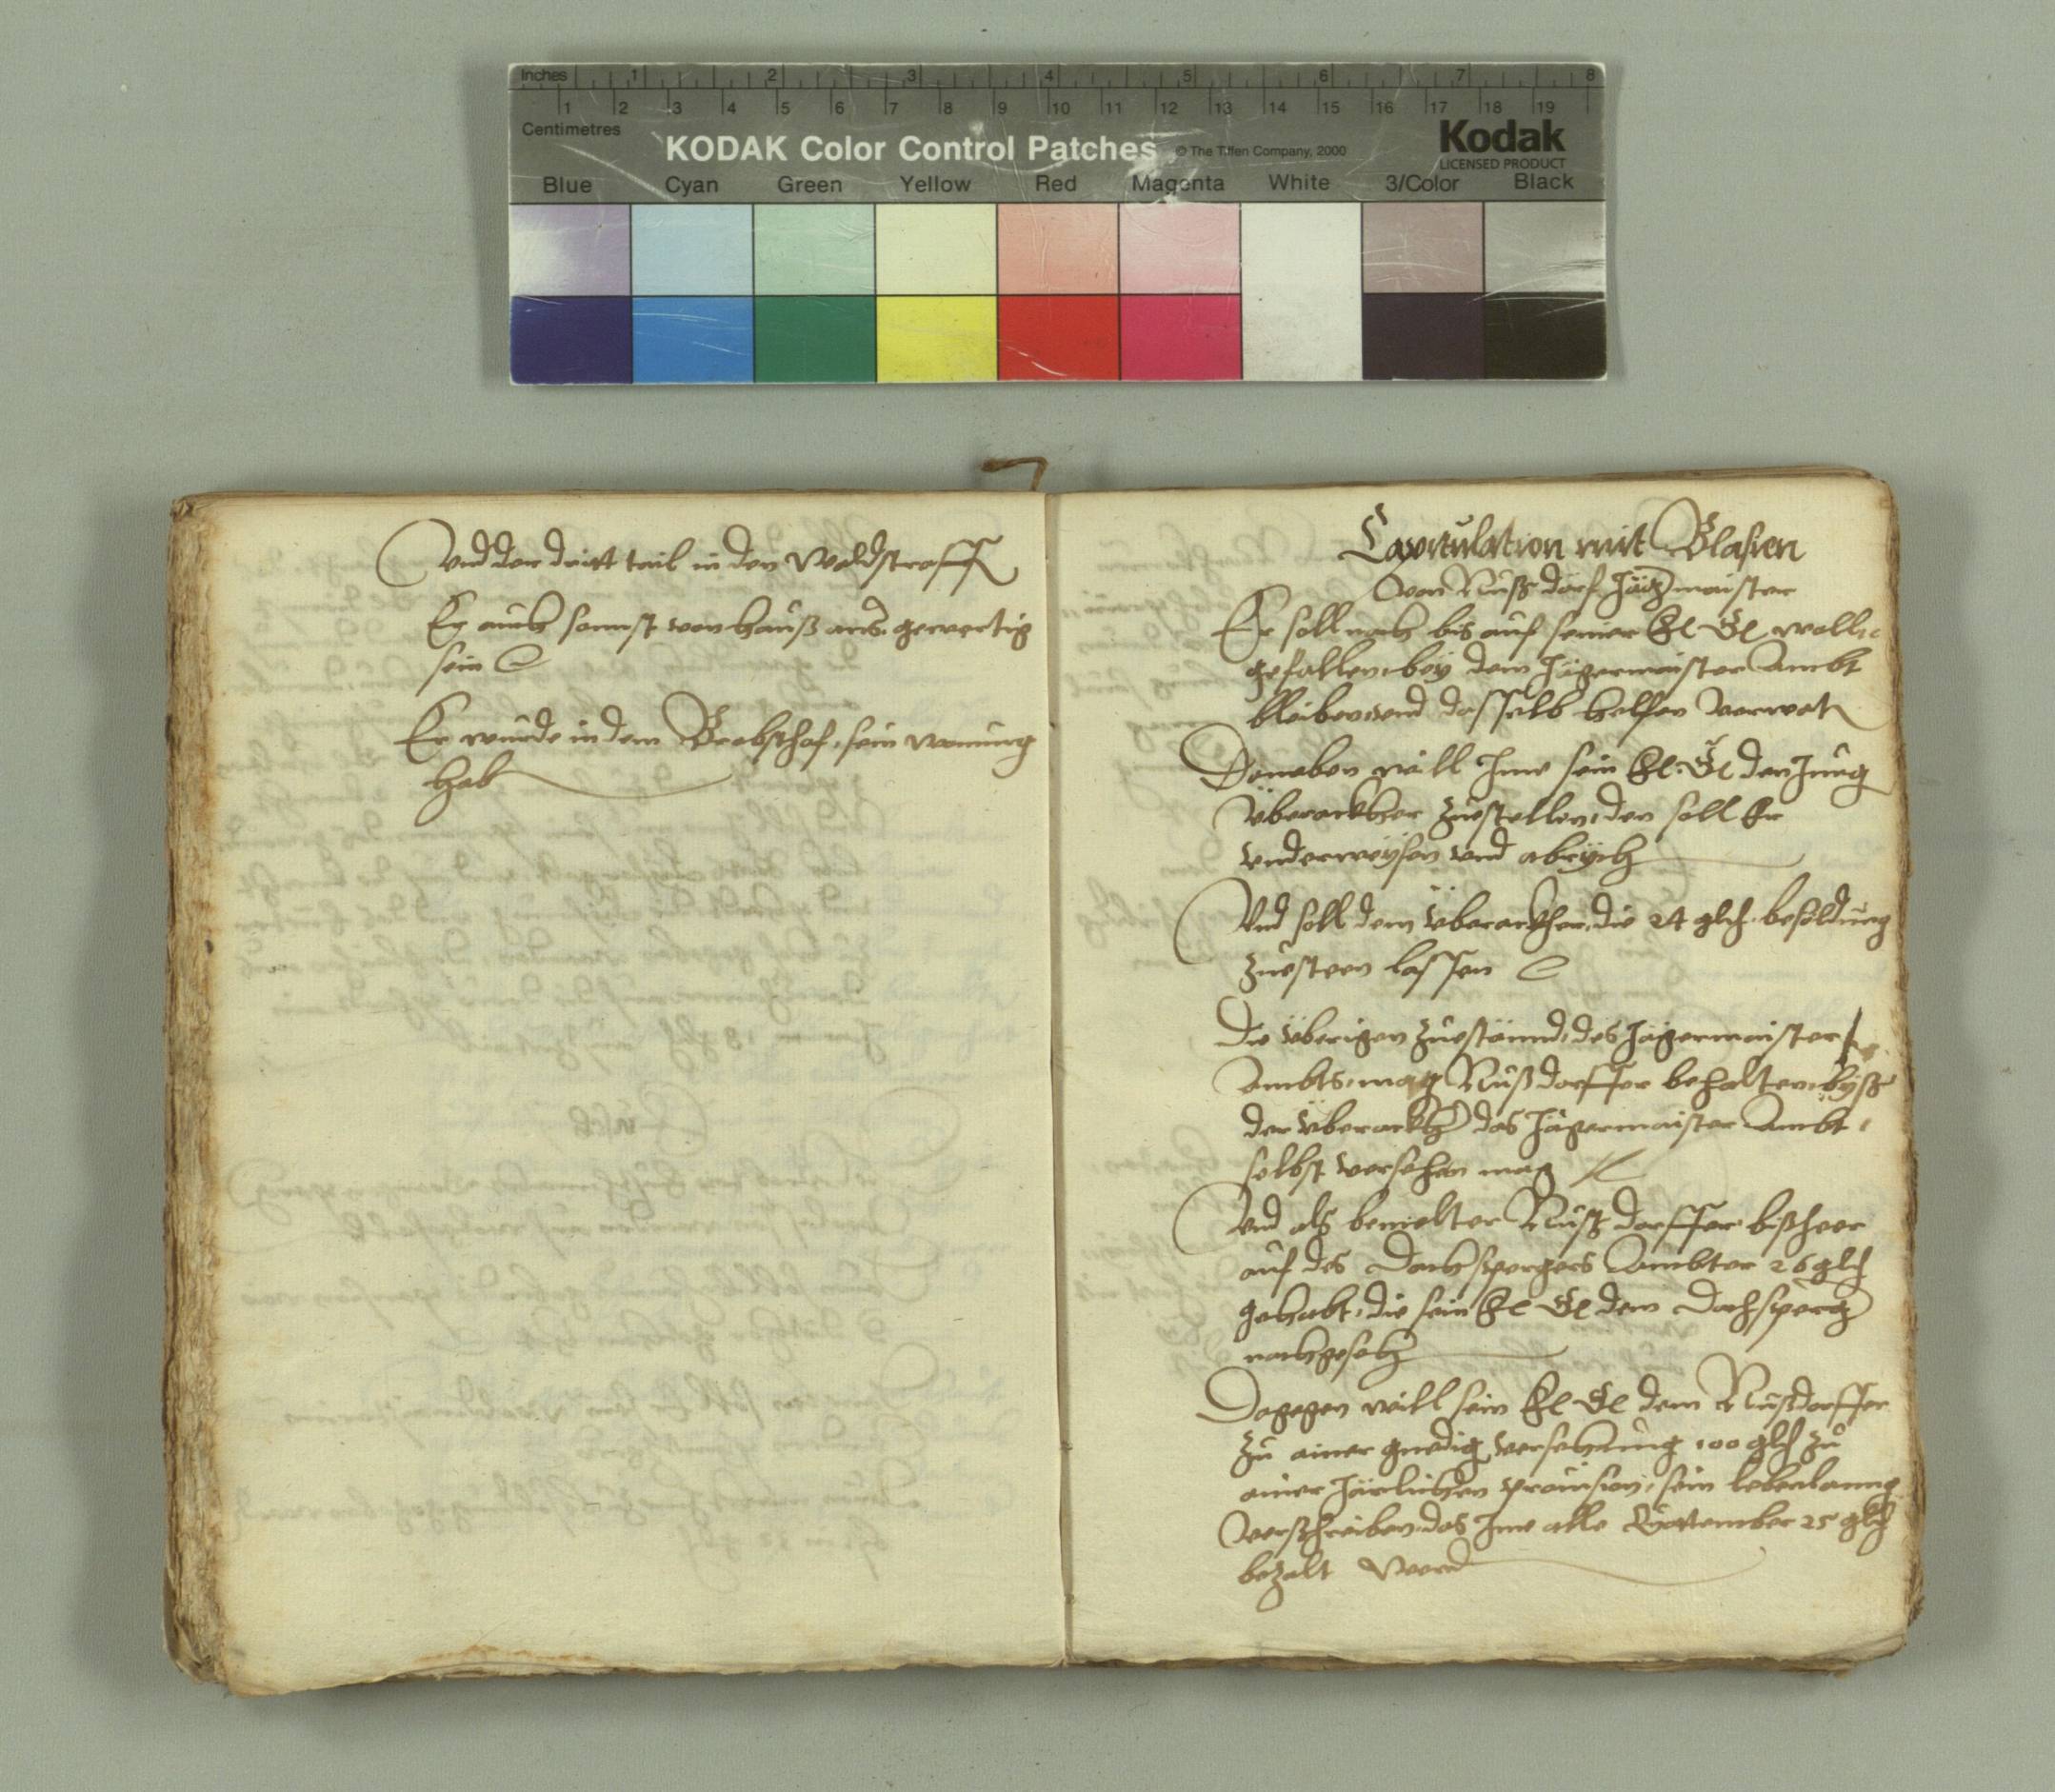 Inches 1 2 3 4 5 6 7 8
1 2 3 4 5 6 7 8 9 10 11 12 13 14 15 16 17 18 19
Centimetres
KODAK Color Control Patches © The Tiffen Company, 2000
Kodak
LICENSED PRODUCT
Blue Cyan Green Yellow Red Magenta White 3/Color Black
Vnd der dritt tail in den Waldstraffn
Er auch sonnst von hauß aus gewerttig
sein
Er wurde in dem Probsthof sein wonung
hab
Capitulation mit Blasien
von Nußdorf Jägermaister
Er soll noch bis auf seiner Fl Gl wol
gefallen bey dem Jägermaister Ambt
bleiben vnd dasselb helffen verwalt
Daneben will Ime sein Fl Gl den Jung
Überackher zuestellen, den soll Er
vnderweysen vnd abrych
Vnd soll dem Überackher die 24 besoldung
zuesteen lassen
Die überigen zueständ des Jägermaister
Ambts mag Nußdorffer behalten byß
der Überackher das Jägermaister Ambt
selbst versehen mag
Vnd als bemelter Nußdorffer bisheer
auf des Dachspergers Ambter 26
gehabt, die sein Fl Gl dem Dachsperg
nachgesech
Dagegen will sein Fl Gl dem Nußdorffer
zu ainer gnedig versehung 100 zu
ainer Järlichen prouision sein lebenlanng
verschreiben das Ime alle Quottember 25
bezalt werd